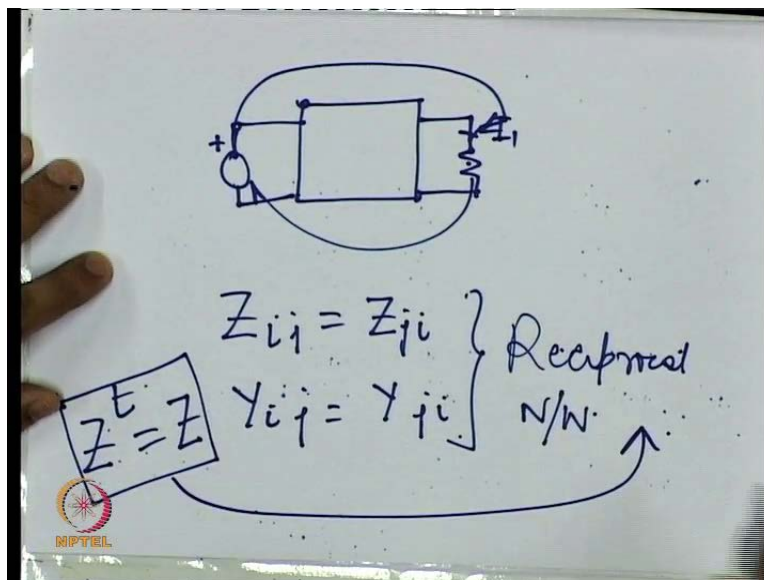 +
I₁
Zᵢⱼ = Zⱼᵢ
Yᵢⱼ = Yⱼᵢ
Reciprocal
N/W.
Zᵗ = Z
NPTEL